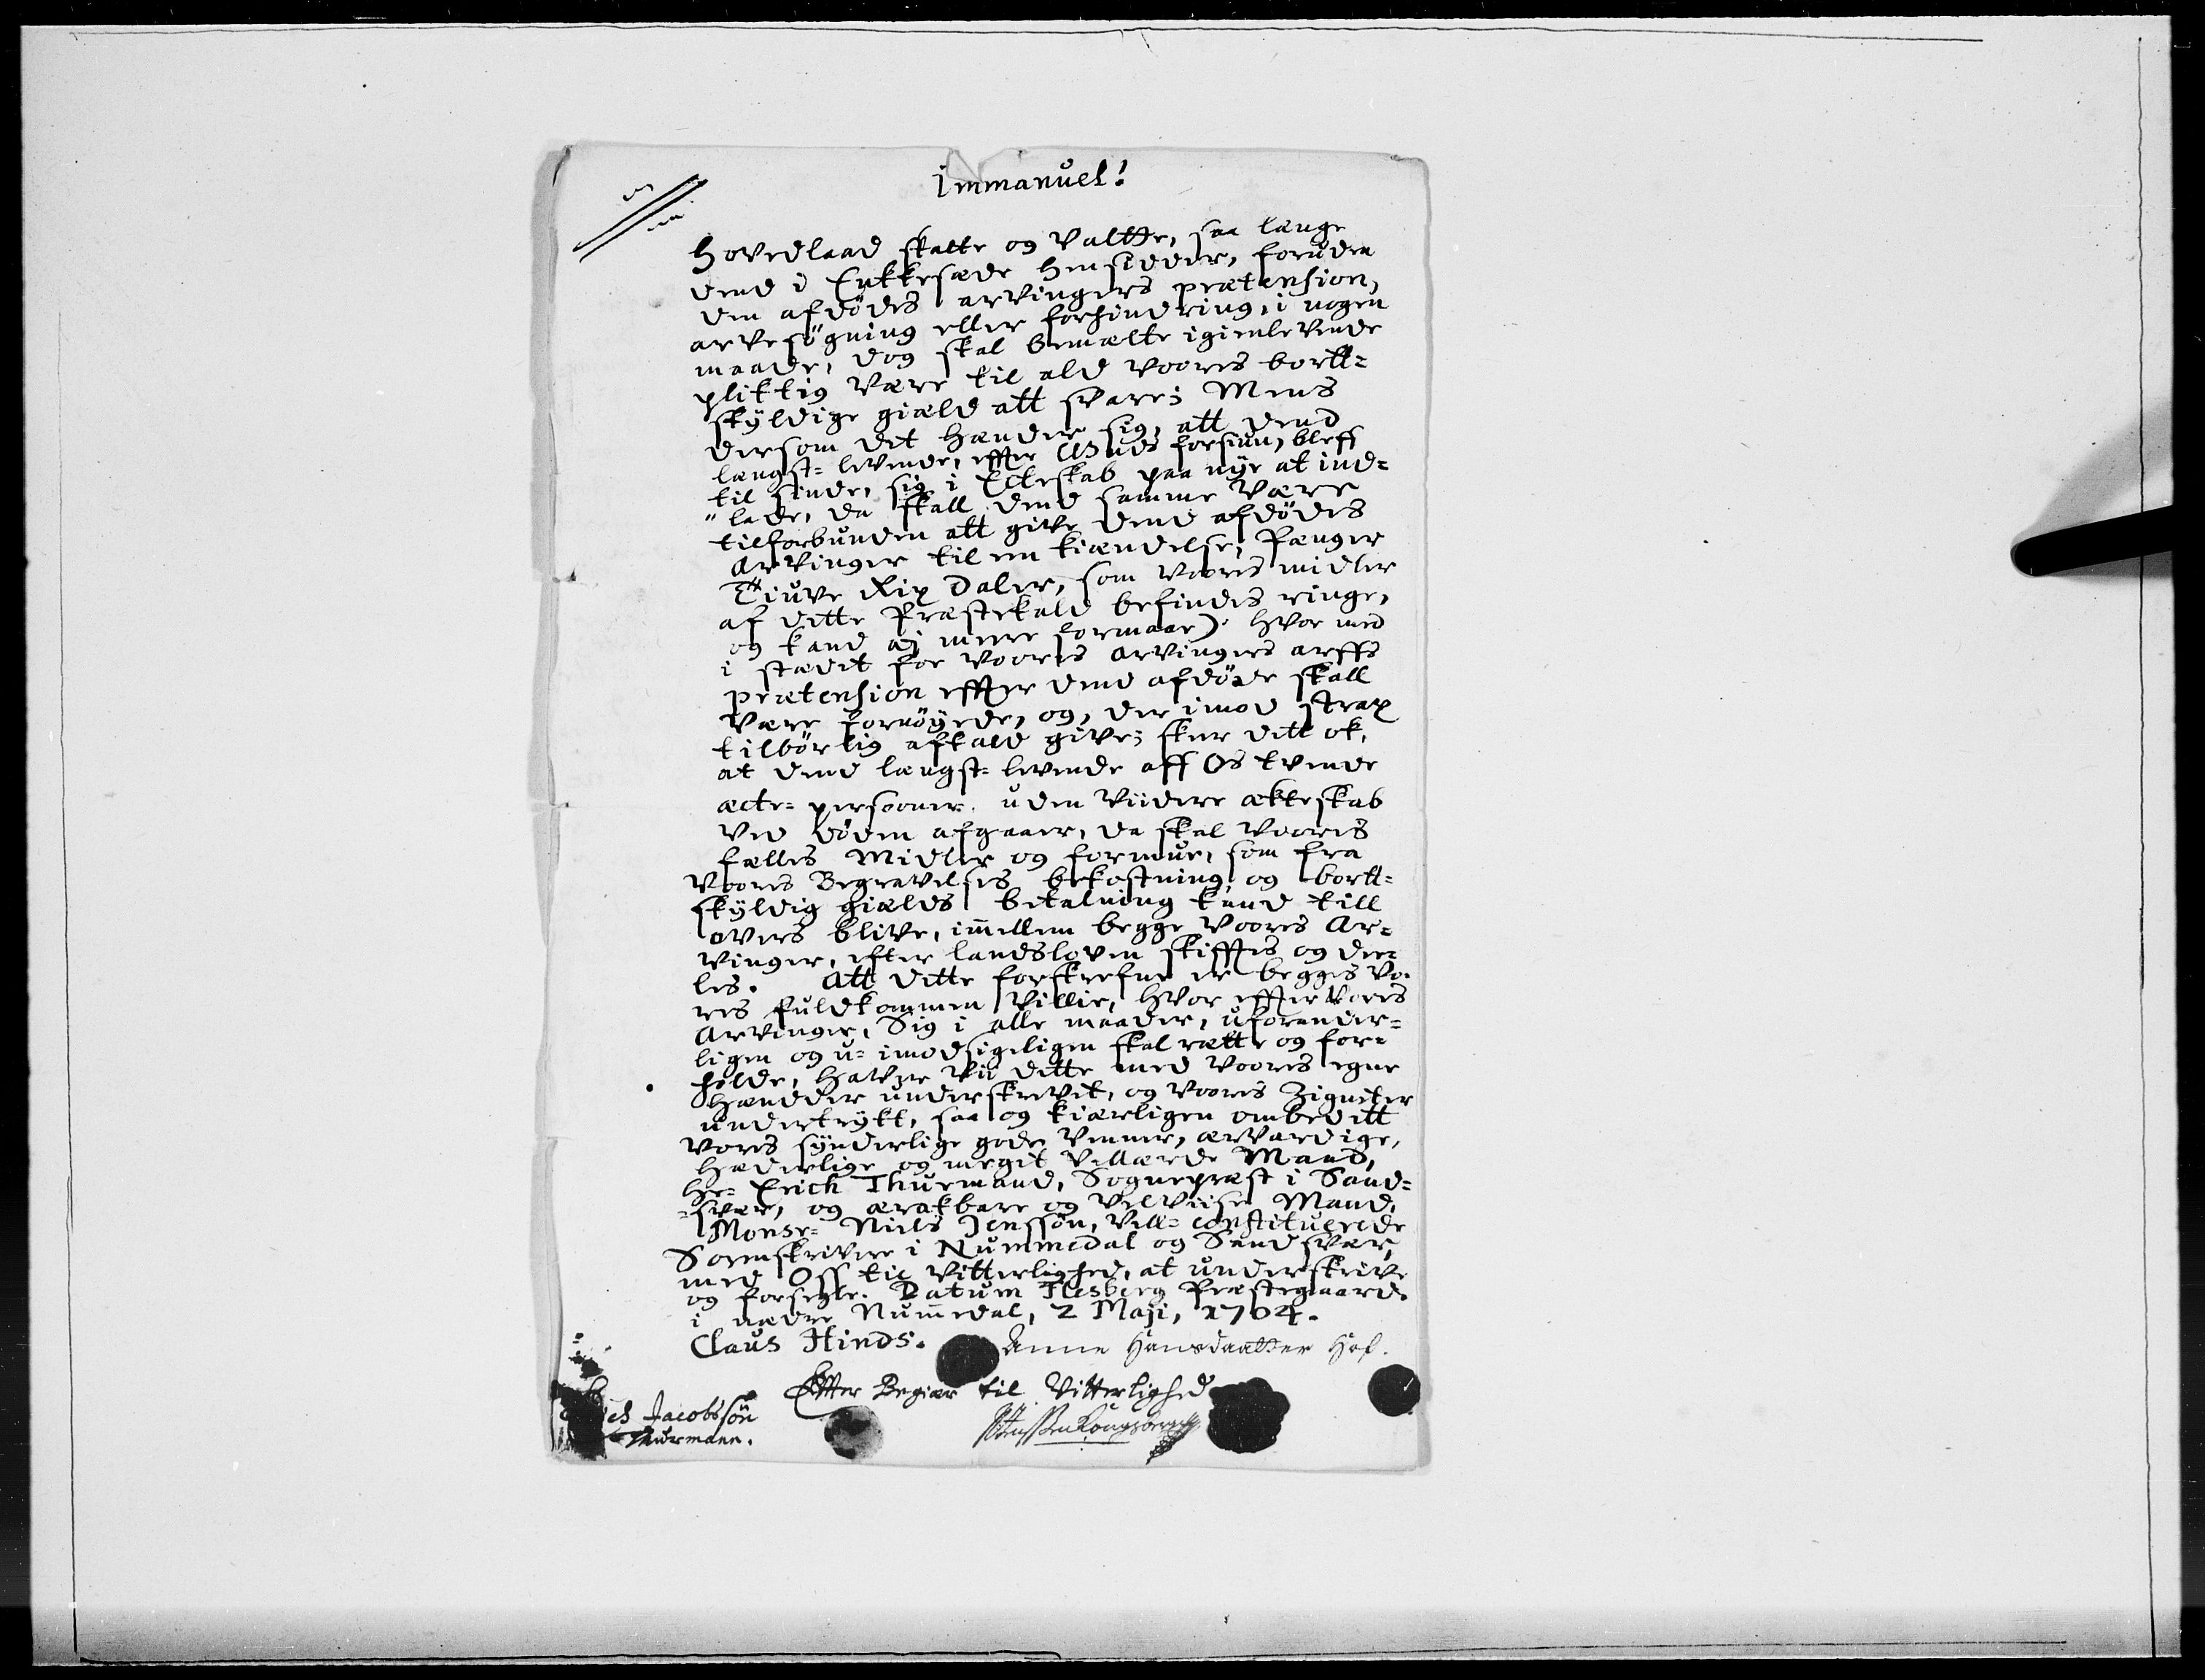 Immanuel!
hovedlaad skalte og Valtte, saa længe
dend i Enkkesæde hensidder, foruden
den afdödes arvingers prætension,
arvesögning eller forhindring, i nogen
maade, dog skal bemælte igienlevende
pliktig være til ald voores bortt=
skÿldige giæld att svare; Mens
dersom det hænder sig, att dend
længst= levende, effter Guds forsiun, bleff
til sinde, sig i Ecteskab paa nÿe at ind=
"lade, da skall dend samme være
tilforbunden att give dend afdödes
Arvinger til en kiændelse, Penger
Tiuve Rix Daler, som voores midler
af dette Præstekald befindes ringe,
og kand ej mere formaar) hvor med
i stædet for voores arvingers arffs
prætension effter dend afdöde skall
være fornöÿede, og, der imod strax
tilbörlig afkald give; skeer dett ok,
at dend længst= levende aff Os tvende
ecte= persooner. uden Viidere ækteskab
ved döden afgaaer, da skal voores
fælles Midler og formue, som fra
voores Begravelses bekostning og bortt=
skÿldig giælds betalning kand till
overs blive, imellem begge voores Ar=
vinger, efter landsloven skifftes og dee=
les. Att dette forskrefne er begges vo=
res fuldkommen villie, hvor effter vores
Arvinger, Sig i alle maader, uforander=
ligen og u= imodsigeligen skal rætte og for=
holde, hafver Vii dette med voores egne
hændder underskrevet, og voores Zigneter
undertrÿkt, saa og kiærligen ombedett
vores sÿnderlige gode venner, ærværdige,
hæderlige og meget Vellærde Mand,
Hr= Erich Thurmand, Sognepræst i Sand=
=sver, og ærakbare og velviise Mand,
Monsr= Niels Jenssön, vell= constituerede
Sorenskrivere i Nummedal og Sandsver,
med Oss til vitterlighed, at underskrive
og forsegle. Datum Flesberg Præstegaard
i nædre Nummedal, 2 Maji, 1704.
Claus Hinds. Anne Hansdaatter Hof.
Effter Begiær til Vitterlighed
Jacobssön
Thurmann.